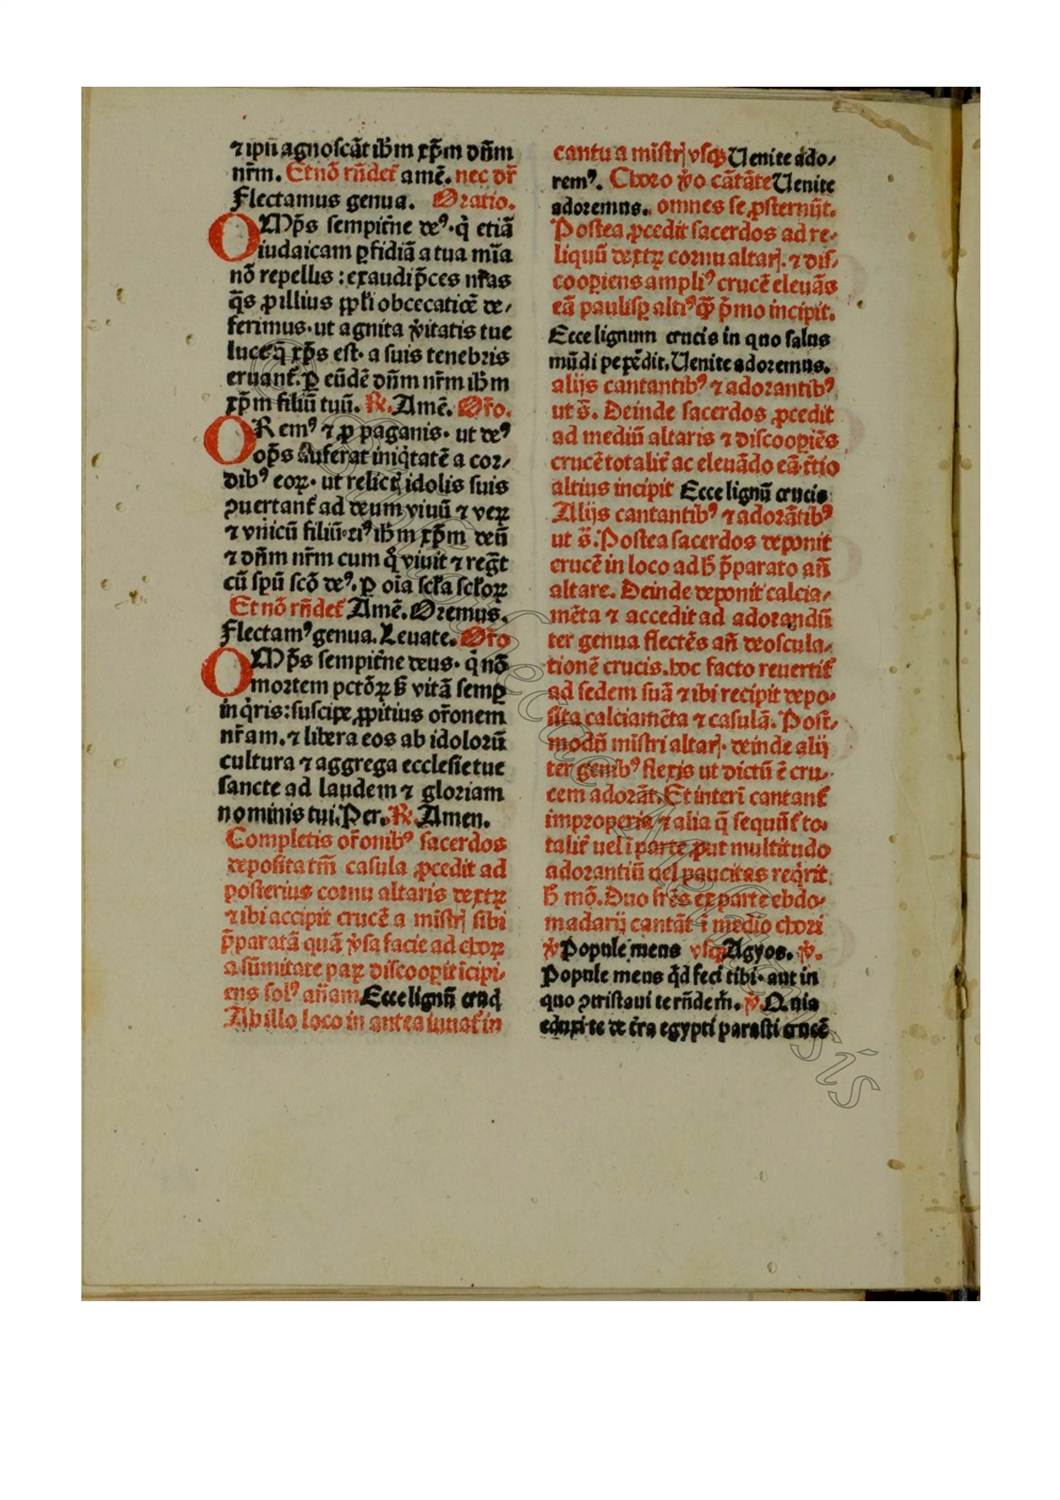 ⁊ ipū agnoſcāt ihm̄ xp̄m dn̄m
nr̄m. Et nō rn̄det̄ amē. nec dr̄
Flectamus genua. Oratio.
OMp̄s ſempit̄ne deꝰ· q̇ etiā
iudaicam ꝑfidiā a tua mīa
nō repellis : exaudi p̄ces nr̄as
q̄s ꝓ illius ꝓpl̄i obcecatiōe de⸗
ferimus· ut agnita v̄itatis tue
luce q̄ xp̄s eſt· a ſuis tenebris
eruant̄. ꝑ eūdē dn̄m nr̄m ihm̄
xp̄m filiū tuū. ℟. Amē. Or̄o.
ORemꝰ ⁊ ꝓ paganis· ut deꝰ
op̄s auferat iniq̇tatē a cor⸗
dibꝰ eoꝝ· ut relictꝭ idolis ſuis
ꝯuertant̄ ad deum viuū ⁊ veꝝ
⁊ vnicū filiū· eiꝰ ihm̄ xp̄m deū
⁊ dn̄m nr̄m cum q̇ viuit ⁊ regt̄
cū ſpū ſcō deꝰ. ꝑ oīa ſcl̄a ſcl̄oꝝ
Et nō rn̄det̄ Amē. Oremus.
Flectamꝰ genua. Leuate. Or̄o
OMp̄s ſempit̄ne deus· q̇ nō
mortem pctōꝝ ſꝫ vitā ſemꝑ
inq̇ris: ſuſcipe ꝓpitius or̄onem
nr̄am. ⁊ libera eos ab idoloꝝ
cultura ⁊ aggrega eccleſie tue
ſancte ad laudem ⁊ gloriam
nominis tui. Per. ℟. Amen.
Completis or̄onibꝰ ſacerdos
depoſita tm̄ caſula ꝓcedit ad
poſterius cornu altaris dextꝝ
⁊ ibi accipit crucē a miſtrꝭ ſibi
p̄paratā quā v̄ſa facie ad choꝝ
a ſūmitate paꝝ diſcooꝑit īcipi⸗
ens ſolꝰ an̄am Ecce lignū crucꝭ
Ab illo loco in antea iuuat̄ in
cantu a miſtrꝭ vſqꝫ Uenite ado⸗
remꝰ. Choro v̄o cātāte Uenite
adoremus. omnes ſe ꝓſternūt.
Poſtea ꝓcedit ſacerdos ad re⸗
liquū dextꝝ cornu altarꝭ. ⁊ diſ⸗
cooꝑiens ampliꝰ crucē eleuās
eā pauliſꝑ altiꝰ qꝫ p̄mo incipit.
Ecce lignum crucis in quo ſalus
mūdi pependit. Uenite adoremus.
alijs cantantibꝰ ⁊ adorantibꝰ
ut s̄. Deinde ſacerdos ꝓcedit
ad mediū altaris ⁊ diſcooꝑiēs
crucē totalit̄ ac eleuādo eā t̄tio
altius incipit Ecce lignū crucis
Alijs cantantibꝰ ⁊ adorātibꝰ
ut s̄. Poſtea ſacerdos deponit
crucē in loco ad h̄ p̄parato an̄
altare. Deinde deponit calcia⸗
mēta ⁊ accedit ad adorandū
ter genua flectēs an̄ deoſcula⸗
tionē crucis. hoc facto reuertit̄
ad ſedem ſuā ⁊ ibi recipit depo⸗
ſita calciamēta ⁊ caſulā. Poſt⸗
modū miſtri altarꝭ· deinde alij
ter genibꝰ flexis ut dictū ē cru⸗
cem adorāt. Et interī cantant̄
improperia ⁊ alia q̄ ſequūt̄ to⸗
talit̄ uel ī parte ꝓut multitudo
adorantiū uel paucitas req̇rit
h̄ mō. Duo fr̄es ex parte ebdo⸗
madarij cantāt ī medio chori
℣ Popule meus vſqꝫ Agyos. ℣.
Popule meus qd̄ feci tibi· aut in
quo ꝯtriſtaui te rn̄de m̄. ℣. Quia
eduxi te de t̄ra egypti paraſti crucē